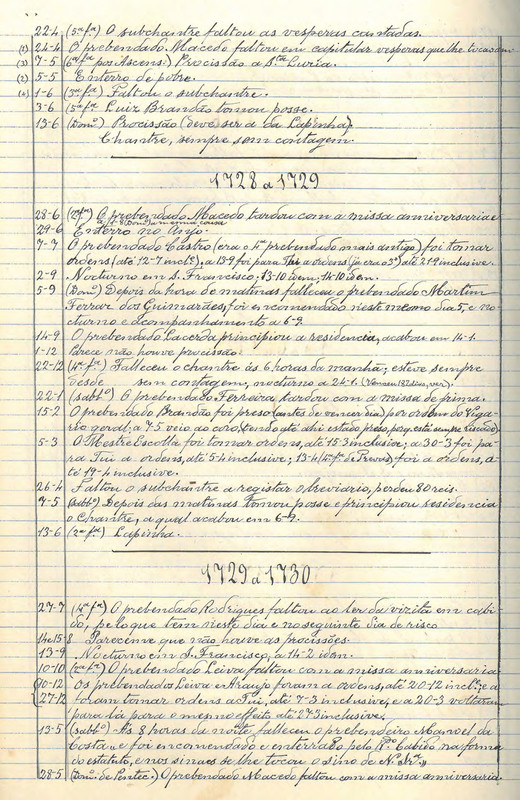 22-4 (5ª fª) O subchantre faltou as vesperas cantadas.
(1) 24-4 O prebendado Macedo faltou em capitular vesperas que lhe tocavam
(3) 7-5 (6ª fª pos Ascens.) Procissão a Stª Luzia.
(2) 5-5 Enterro de pobre.
(4) 1-6 (3ª fª) Faltou o subchantre.
3-6 (5ª fª) Luiz Brandão tomou posse.
13-6 (Domº) Procissão (deve ser a da Lapinha)
Chantre, sempre sem contagem.
1728 a 1729
28-6 (2ª fª) O prebendado Macedo tardou com a missa anniversaria e
a 1-8 (Domº) a mesma cousa
29-6 Enterro no Anjo.
7-7 O prebendado Castro (era o 4º prebendado mais antigo) foi tomar
ordens (até 12-7 inclº), a 13-9 foi para Tui a ordens (já era o 3º) até 21-9 inclusive.
2-9 Nocturno em S. Francisco, 13-10 idem, 14-10 idem.
5-9 (Domº) Depois da hora de matinas falleceu o prebendado Martim
Ferraz dos Guimarães, foi encomendado neste mesmo dia 5, e no-
cturno e acompanhamento a 6-9.
14-9 O prebendado Lacerda principiou a residencia, acabou em 14-1.
1-12 Parece não houve procissão.
22-12 (4ª fª) Falleceu o chantre ás 6 horas da manhã; esteve sempre
desde sem contagem, nocturno a 24-1. (Venceu 187 dias, ver).
22-1 (sabbº) O prebendado Ferreira tardou com a missa de prima.
15-2 O prebendado Brandão foi preso (antes de vencer dia) por ordem do Viga-
rio geral; a 7-5 veio ao coro (tendo até ahi estado preso, porq. está sempre riscado)
5-3 O Mestre Escolla foi tomar ordens, até 15-3 inclusive; a 30-3 foi pa-
ra Tui a ordens, até 5-4 inclusive; 13-4 (4ª fª de Trevas) foi a ordens, a-
té 19-4 inclusive.
26-4 Faltou o subchantre a registar o breviario, perdeu 80 reis.
7-5 (sabbº) Depois das matinas tomou posse e principiou residencia
o Chantre, a qual acabou em 6-9.
13-6 (2ª fª) Lapinha.
1729 a 1730
27-7 (4ª fª) O prebendado Rodrigues faltou ao ler da vizita em cabi-
do, pelo que tem neste dia e no seguinte dia de risco
14 e 15-8 Pareceme que não houve as procissões.
13-9 Nocturno em S. Francisco, a 14-2 idem.
10-10 (2ª fª) O prebendado Leiva faltou com a missa anniversaria.
10-12 Os prebendados Leiva e Araujo foram a ordens, até 20-12 inclº; e a
27-12 foram tomar ordens a Tui, até 7-3 inclusive, e a 20-3 voltaram
para lá para o mesmo effeito até 27-3 inclusive.
13-5 (sabbº) Ás 8 horas da noite, falleceu o prebendeiro Manoel da
Costa, e foi encomendado e enterrado pelo Rdº Cabido na forma
do estatuto, e nos sinaes se lhe tocou o sino de N. Srª.,,
28-5 (Domº de Pentec.) O prebendado Macedo faltou com a missa anniversaria.